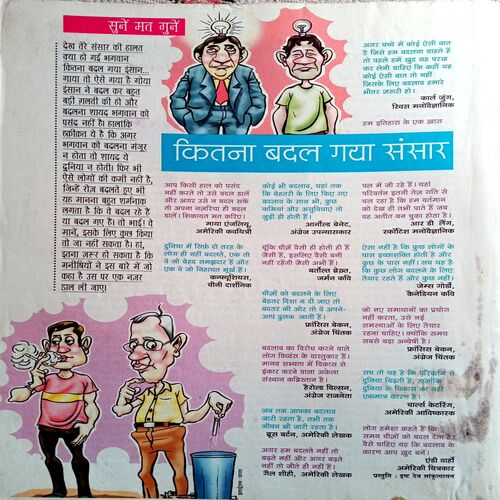 सुनें मत गुनें
देख तेरे संसार की हालत
क्या हो गई भगवान
कितना बदल गया इंसान...
गाया तो ऐसे गया है गोया
इंसान ने बदल कर बहुत
बड़ी ग़लती की हो और
बदलना शायद भगवान को
पसंद नहीं है। हालांकि
हक़ीक़त ये है कि अगर
भगवान को बदलना मंजूर
न होता तो शायद ये
दुनिया न होती। फिर भी
ऐसे लोगों की कमी नहीं है,
जिन्हें रोज़ बदलते हुए भी
यह मानना बहुत शर्मनाक
लगता है कि वे बदल रहे हैं
या बदल गए हैं। तो भाई! वे
मानें, इसके लिए कुछ किया
तो जा नहीं सकता है। हां,
इतना ज़रूर हो सकता है कि
मनीषियों ने इस बारे में जो
कहा है उस पर एक नज़र
डाल ली जाए।
अगर बच्चे में कोई ऐसी बात
है जिसे हम बदलना चाहते हैं
तो पहले हमें खुद यह परख
कर लेनी चाहिए कि कहीं वह
कोई ऐसी बात तो नहीं
जिसके लिए बदलाव हमारे
भीतर ज़रूरी हो।
कार्ल जुंग,
स्विस मनोवैज्ञानिक
हम इतिहास के एक खास
कितना बदल गया संसार
आप किसी हाल को पसंद
नहीं करते तो उसे बदल डालें
और अगर उसे न बदल सकें
तो अपना नज़रिया ही बदल
डालें। शिकायत मत करिए।
माया एंजलियू,
अमेरिकी कवयित्री
दुनिया में सिर्फ़ दो तरह के
लोग ही नहीं बदलते, एक तो
वे जो बेहद समझदार हैं और
एक वे जो निहायत मूर्ख हैं।
कन्फ्यूशियस,
चीनी दार्शनिक
कोई भी बदलाव, यहां तक
कि बेहतरी के लिए किए गए
बदलाव के साथ भी, कुछ
कमियां और असुविधाएं तो
जुड़ी ही होती हैं।
आर्नोल्ड बेनेट,
अंग्रेज उपन्यासकार
चूंकि चीज़ें वैसी ही होती हैं हैं
जैसी हैं, इसलिए वैसी बनी
नहीं रहेंगी जैसी अभी हैं।
बर्तोल्त ब्रेख़्त,
जर्मन कवि
चीज़ों को बदलने के लिए
बेहतर दिशा न दी जाए तो
बदतर की ओर तो वे अपने-
आप ढुलक जाती हैं।
फ्रांसिस बेकन,
अंग्रेज चिंतक
बदलाव का विरोध करने वाले
लोग विध्वंस के वास्तुकार हैं।
मानव सभ्यता में विकास से
इंकार करने वाला अकेला
संस्थान कब्रिस्तान है।
हैरोल्ड विल्सन,
अंग्रेज राजनेता
जब तक आपका बदलाव
जारी रहता है, तभी तक
जीवन भी जारी रहता है।
ब्रूस बर्टन, अमेरिकी लेखक
अगर हम बदलते नहीं तो
बढ़ते नहीं और अगर बढ़ते
नहीं तो जीते ही नहीं हैं।
गैल शीही, अमेरिकी लेखक
पल में जी रहे हैं। यहां
परिवर्तन इतनी तेज़ गति से
चल रहा है कि हम वर्तमान
को देख ही तभी पाते हैं जब
वह अतीत बन चुका होता है।
आर डी लैंग,
स्कॉटिश मनोवैज्ञानिक
ऐसा नहीं है कि कुछ लोगों के
पास इच्छाशक्ति होती है और
कुछ के पास नहीं। सच यह है
कि कुछ लोग बदलने के लिए
तैयार रहते हैं और कुछ नहीं।
जेम्स गोर्डो,
कैनेडियन कवि
जो नए समाधानों का प्रयोग
नहीं करता, उसे नई
समस्याओं के लिए तैयार
रहना चाहिए। क्योंकि समय
सबसे बड़ा अन्वेषी है।
फ्रांसिस बेकन,
अंग्रेज चिंतक
सच तो यह है कि परिवर्तन से
दुनिया बिढ़ती है, हालांकि
दुनिया के विकास का यही
एकमात्र कारण है।
चार्ल्स केटरिंग,
अमेरिकी आविष्कारक
लोग हमेशा कहते हैं कि
समय चीज़ों को बदल देता है।
वैसे चाहिए यह कि बदलाव के
कारण आप खुद बनें।
एंडी वार्हो
अमेरिकी चित्रकार
प्रस्तुति : इष्ट देव सांकृत्यायन